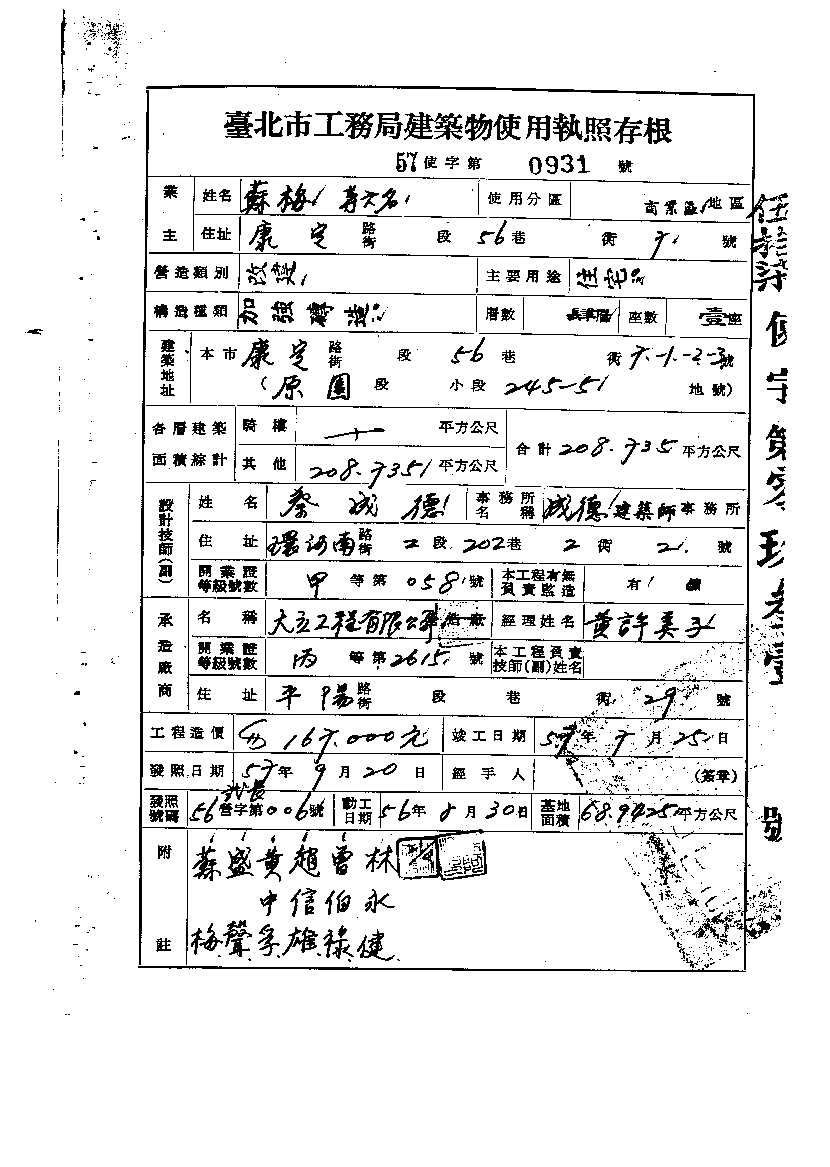 臺北市工務局建築物使用執照存根
57使字第 0931 號
業主 姓名 蘇梅 等六名 使用分區 商業區 地區
住址 康定 路街 段 56巷 街 7 號
營造類別 改建 主要用途 住宅
構造種類 加強磚造 層數 座數 壹座
建築地址 本市 康定 路街 段 56巷 街 7-1-2-3號
(原園 段 小段 245-51 地號)
各層建築面積綜計 騎樓 平方公尺 合計 208.735 平方公尺
其他 208.735 平方公尺
設計技師(副) 姓名 蔡成德 事務所名稱 成德建築師事務所
住址 環河南 路街 2段 202巷 2街 2 號
開業證等級號數 甲 等第 058 號 本工程有無負責監造 有
承造廠商 名稱 大立工程有限公司 經理姓名 黃許美子
開業證等級號數 丙 等第 2615 號 本工程負責技師(副)姓名
住址 平陽 路街 段 巷 街 29 號
工程造價 167.000元 竣工日期 57年7月25日
發照日期 57年9月20日 經手人 (簽章)
發照號碼 56營字第006號 動工日期 56年8月30日 基地面積 68.9425平方公尺
附註 蘇 盛 黃 趙 曾 林
中 信 伯 永
梅 聲 孚 雄 祿 健
伍拾柒使字第零玖叁壹號